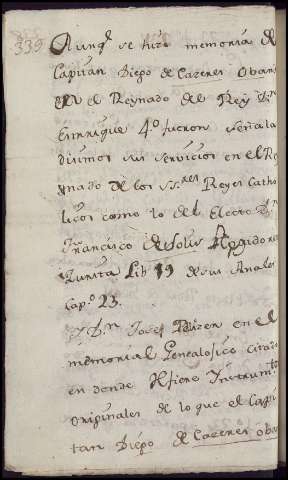 339
Aunq.e se hizo memoria de
Capitan Diego de Caceres Oban
en el Reynado del Rey Dn
Enrrique 4.º fueron señala
disimos sus servicios en el Re
ynado de los SS.res Reyes Catho
licos como lo del Electo Dn
Francisco de Solis Refidore
Zurita Lib 19 de sus Anales
Cap.º 23.
Y Dn Josef Pellizer en el
memorial Genealogico citado
en donde Refiere Instrumtos
originales de lo que el Capi
tan Diego de Caceres Oban